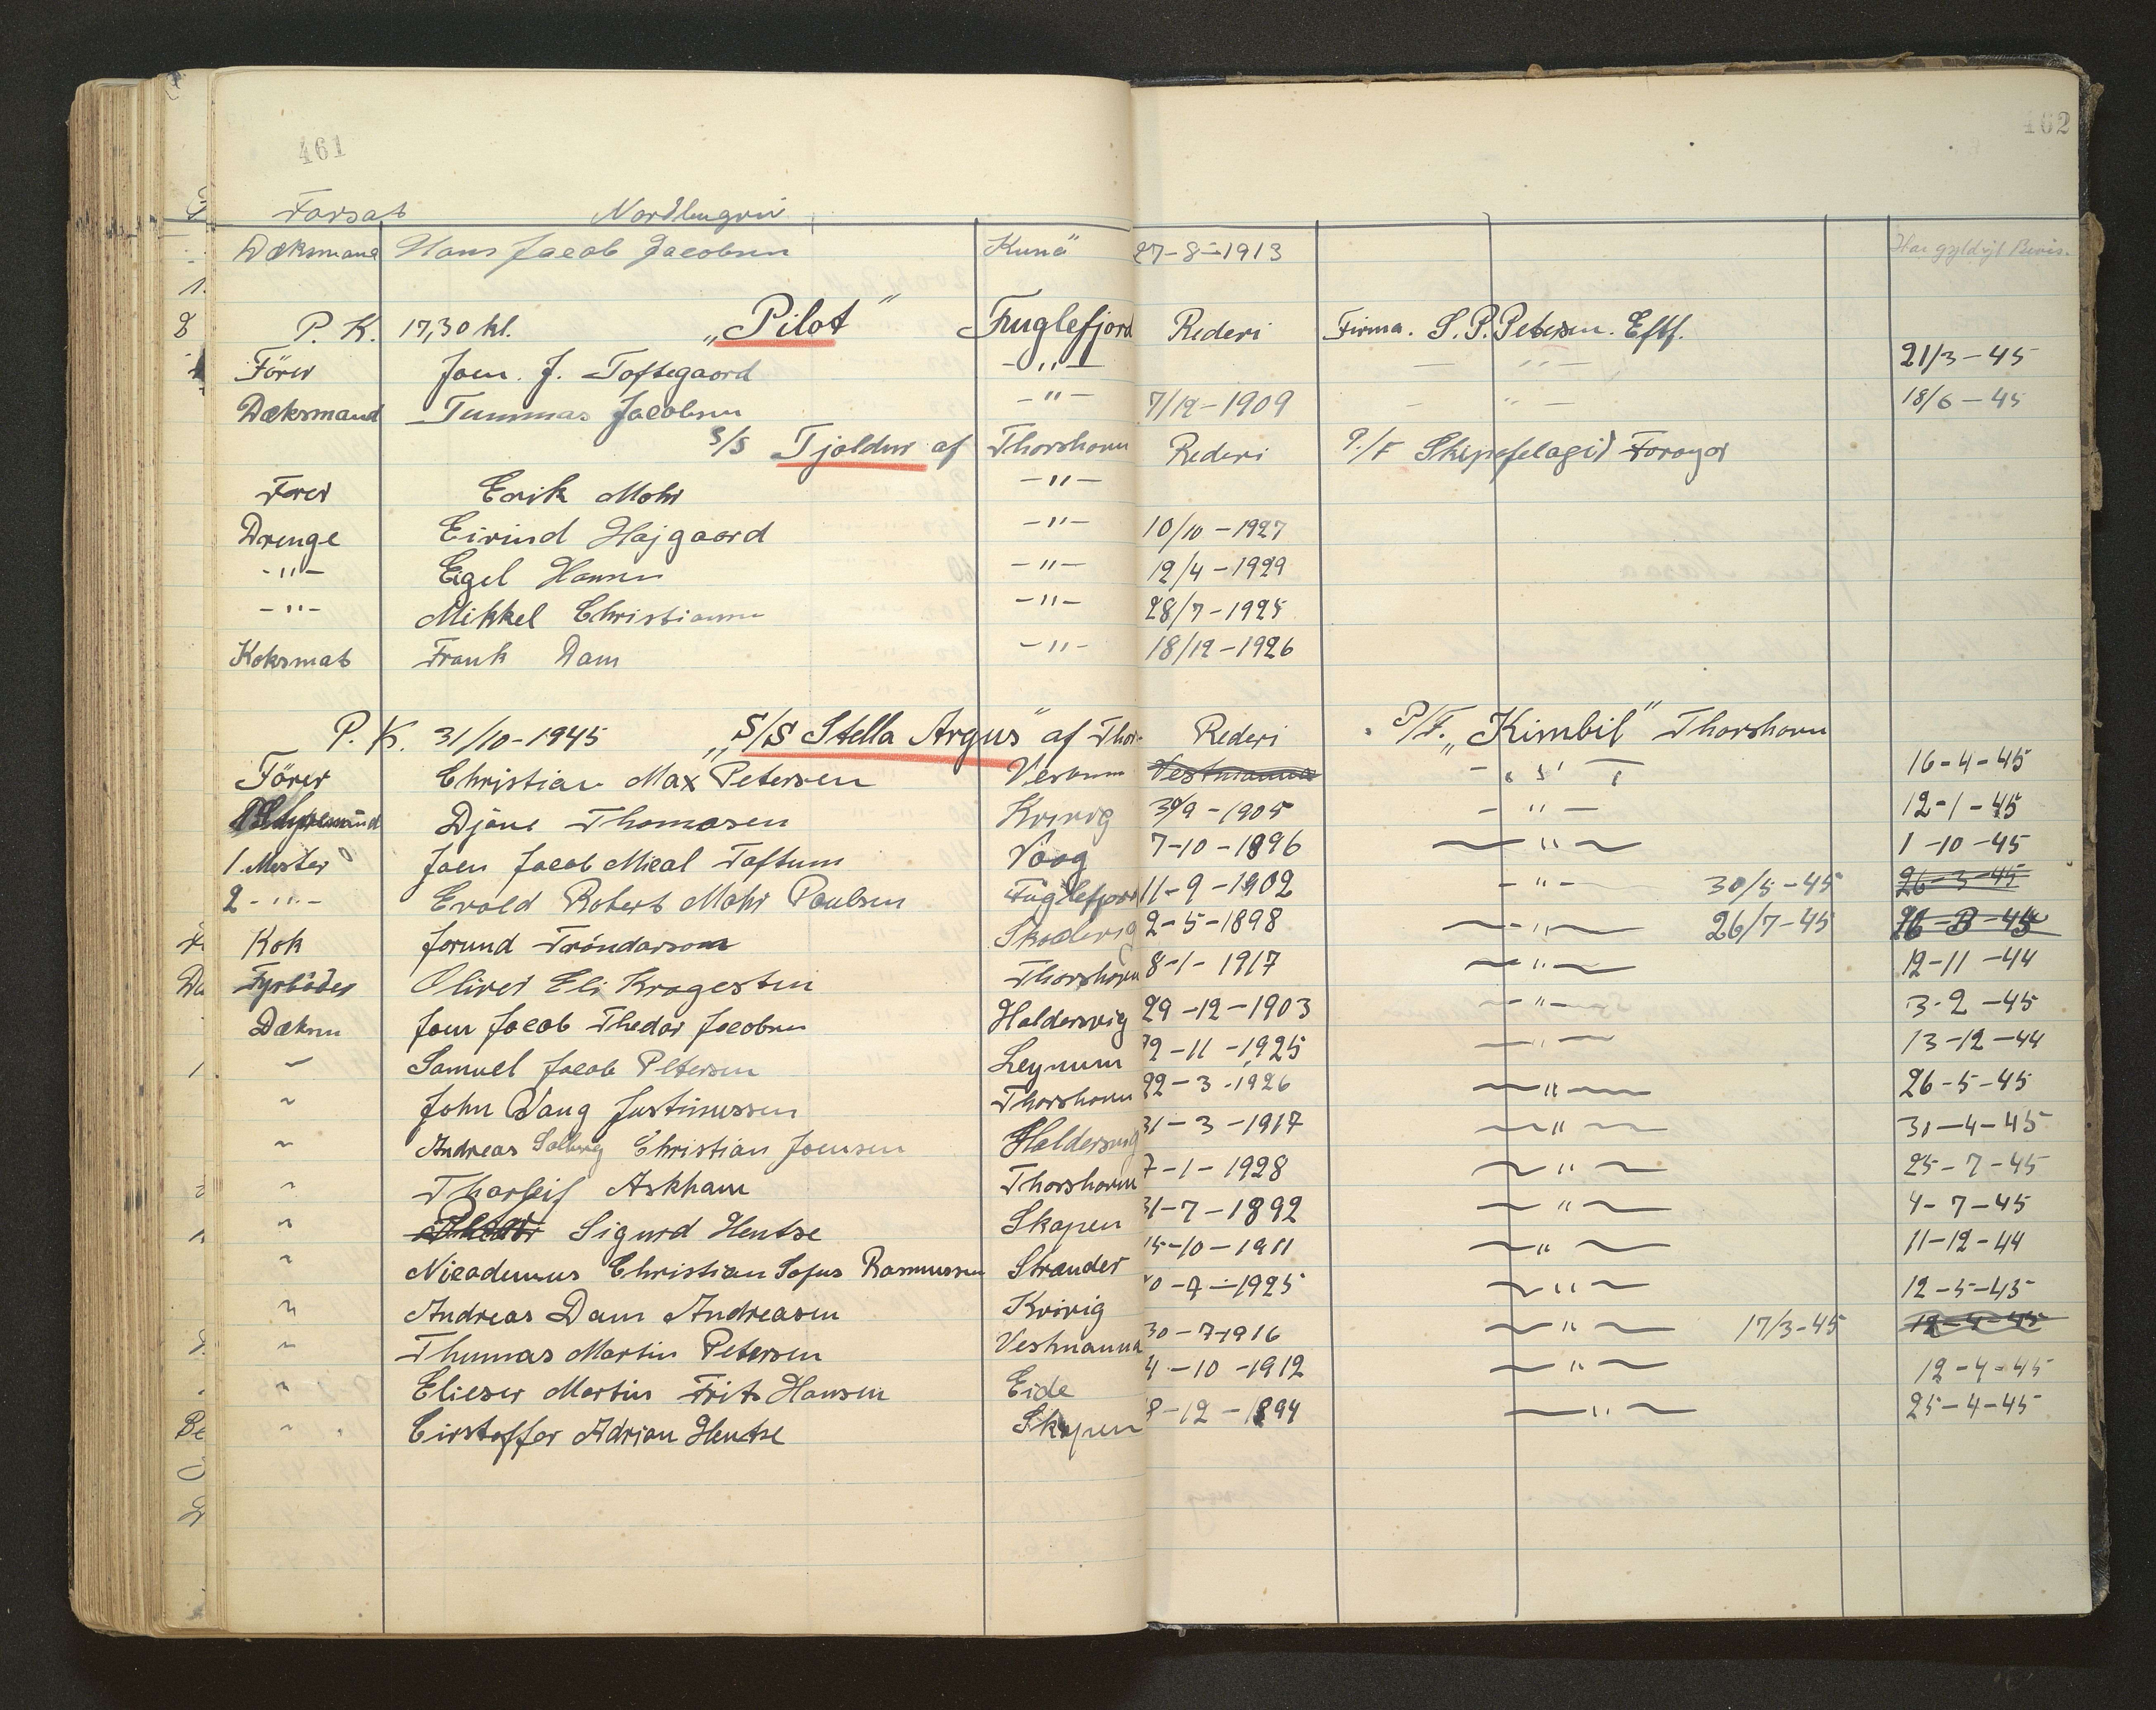 461
462
Forsat Nordlugvin
Dæksmand Hans Jacob Jacobsen Kunø 27-8-1913 Har gyldigt Bevis.
P. K. 17,30 kl. „Pilot" Fuglefjord Rederi Firma. S. P. Petersen. Eftf.
Förer Joen. J. Toftegaard -"- -"- 21/3-45
Dæksmand Tummas Jacobsen -"- 7/12-1909 -"- 18/6-45
S/S Tjaldur af Thorshavn Rederi P/F Skipafelagið Foroyar
Förer Erik Mohr -"-
Drenge Eivind Højgaard -"- 10/10-1927
-"- Egel Hansen -"- 12/4-1929
-"- Mikkel Christiansen -"- 28/7-1925
Koksmat Frank Dam -"- 18/12-1926
P. K. 31/10-1945 „S/S Stella Argus" af Thor- Rederi P/F. „Kimbil" Thorshavn
Förer Christian Max Petersen Vestmm Vestmanna -"- 16-4-45
Djóne Thomasen Kvivig 30/9-1905 -"- 12-1-45
1. Mester Joen Jacob Mical Toftum Vaag 7-10-1896 -"- 1-10-45
2-"- Evald Robert Mohr Poulsen Fuglefjord 11-9-1902 -"- 30/5-45 26-3-45
Kok Jorund Tróndarson Skaalevig 2-5-1898 -"- 26/7-45
Fyrböder Oliver Eli Kragesten Thorshavn 8-1-1917 -"- 12-11-44
Dæksm Joen Jacob Thedor Jacobsen Haldersvig 29-12-1903 -"- 3-2-45
~ Samuel Jacob Petersen Leynum 22-11-1925 -"- 13-12-44
~ John Vang Justinussen Thorshavn 22-3-1926 -"- 26-5-45
~ Andreas Solberg Christian Joensen Haldersvig 31-3-1917 -"- 31-4-45
~ Thorleif Askham Thorshavn 7-1-1928 -"- 25-7-45
~ Sigurd Hentse Skapen 31-7-1892 -"- 4-7-45
~ Nicodemus Christian Sofus Rasmussen Strander 15-10-1911 -"- 11-12-44
~ Andreas Dam Andreasen Kvivig 0-7-1925 -"- 12-5-45
~ Thumas Martin Petersen Vestmanna 30-7-1916 -"- 17/3-45 12-4-45
~ Elieser Martin Frits Hansen Eide 4-10-1912 -"- 12-4-45
~ Cirstoffer Adrian Hentse Skapen 8-12-1894 -"- 25-4-45